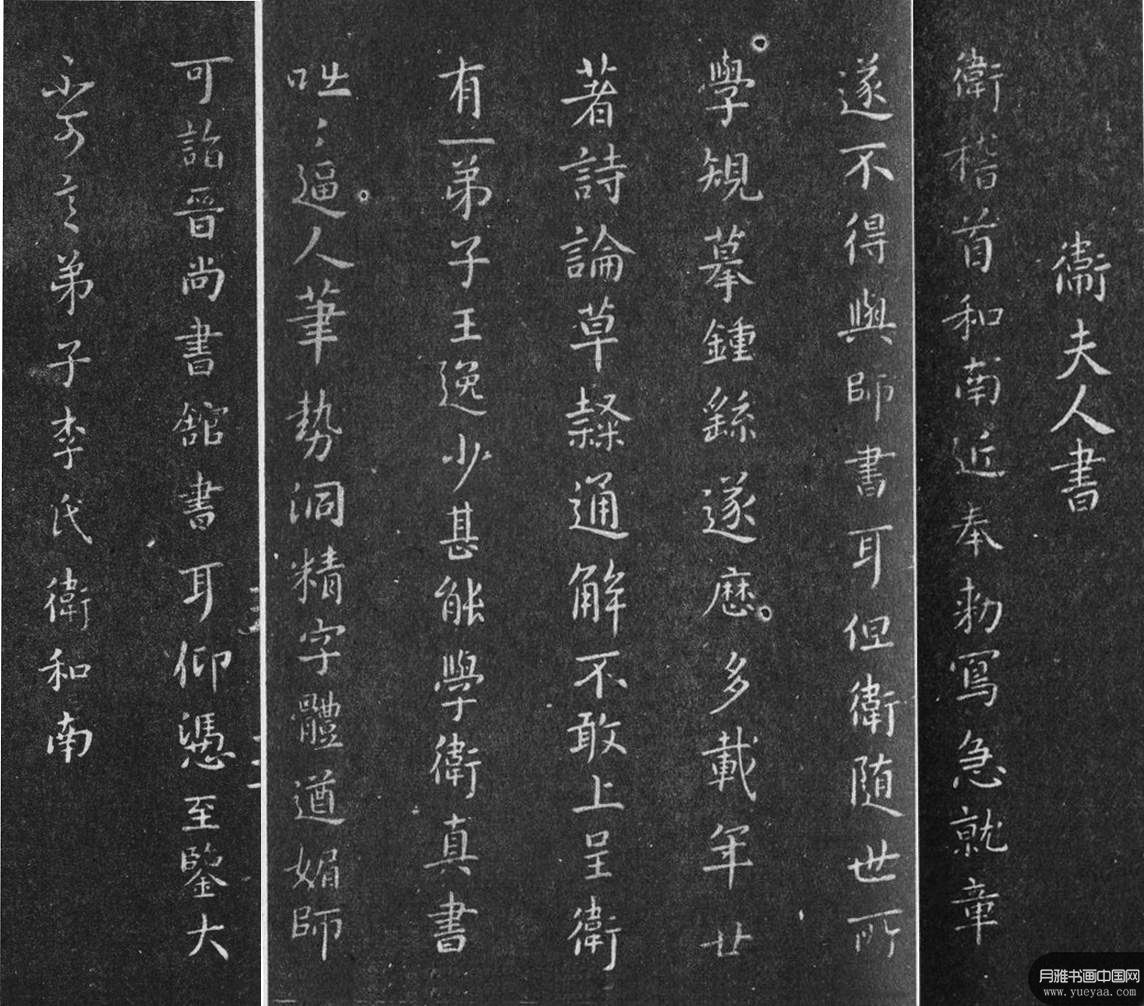 衛夫人書
衛稽首和南近奉勅寫急就章
遂不得與師書耳但衛随世所
學規摹鍾繇遂歷多載年廿
著詩論草隸通解不敢上呈衛
有一弟子王逸少甚能學衛真書
咄〻逼人筆勢洞精字體遒媚師
可詣晉尚書館書耳仰憑至鑒大
不可言弟子李氏衛和南
月雅书画中国网
www.yueyaa.com